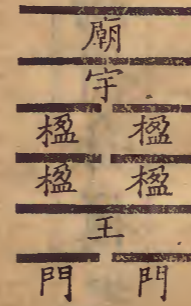 廟
宇
楹 楹
楹 楹
王
門 門